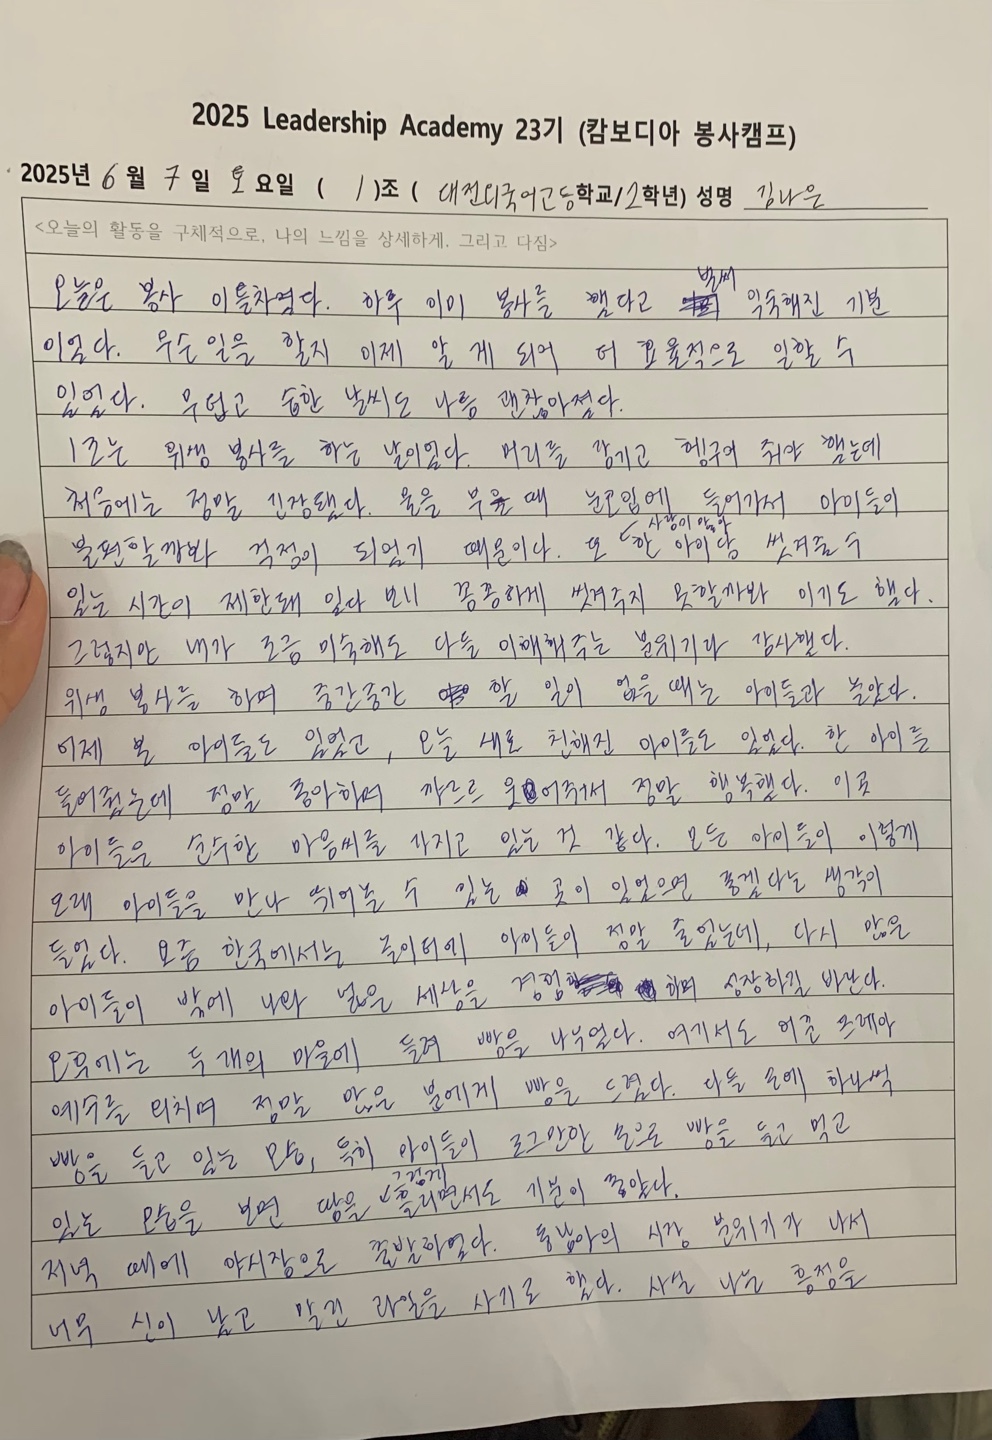 2025 Leadership Academy 23기 (캄보디아 봉사캠프)
2025년 6월 7일 토요일 ( 1 )조 ( 대전외국어고등학교/2학년) 성명 김나은
<오늘의 활동을 구체적으로, 나의 느낌을 상세하게, 그리고 다짐>
오늘은 봉사 이틀차였다. 하루 이미 봉사를 했다고 벌써 익숙해진 기분
이었다. 무슨 일을 할지 이제 알 게 되어 더 효율적으로 일할 수
있었다. 무덥고 습한 날씨도 나름 괜찮아졌다.
1조는 위생 봉사를 하는 날이었다. 머리를 감기고 헹구어 줘야 했는데
처음에는 정말 긴장됐다. 물을 부을 때 눈코입에 들어가서 아이들이
불편할까봐 걱정이 되었기 때문이다. 또 사람이 많아 한 아이당 씻겨줄 수
있는 시간이 제한돼 있다 보니 꼼꼼하게 씻겨주지 못할까봐 이기도 했다.
그렇지만 내가 조금 미숙해도 다들 이해해주는 분위기라 감사했다.
위생 봉사를 하며 중간중간 할 일이 없을 때는 아이들과 놀았다.
어제 본 아이들도 있었고, 오늘 새로 친해진 아이들도 있었다. 한 아이를
들어줬는데 정말 좋아하며 까르르 웃어줘서 정말 행복했다. 이곳
아이들은 순수한 마음씨를 가지고 있는 것 같다. 모든 아이들이 이렇게
오래 아이들을 만나 뛰어놀 수 있는 곳이 있었으면 좋겠다는 생각이
들었다. 요즘 한국에서는 놀이터에 아이들이 정말 줄었는데, 다시 많은
아이들이 밖에 나와 넓은 세상을 경험하며 성장하길 바란다.
오후에는 두 개의 마을에 들려 빵을 나누었다. 여기서도 어꾼 쁘레아
예수를 외치며 정말 많은 분에게 빵을 드렸다. 다들 손에 하나씩
빵을 들고 있는 모습, 특히 아이들이 조그만한 손으로 빵을 들고 먹고
있는 모습을 보면 땀을 그렇게 흘리면서도 기분이 좋았다.
저녁 때에 야시장으로 출발하였다. 동남아의 시장 분위기가 나서
너무 신이 났고 말린 과일을 사기로 했다. 사실 나는 흥정을